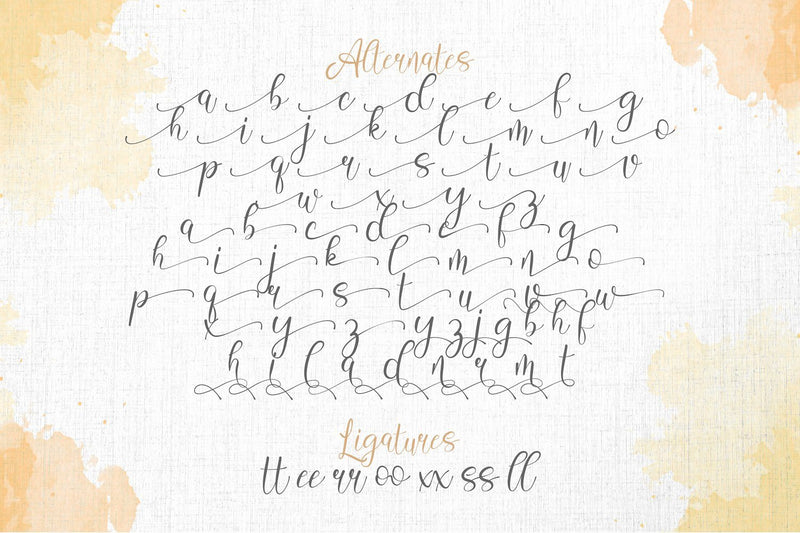 Alternates
a b c d e f g
h i j k l m n o
p q r s t u v
w x y z
a b c d e f g
h i j k l m n o
p q r s t u v w
x y z y z j g b h f
h i l a d n r m t
Ligatures
tt ee rr oo xx ss ll